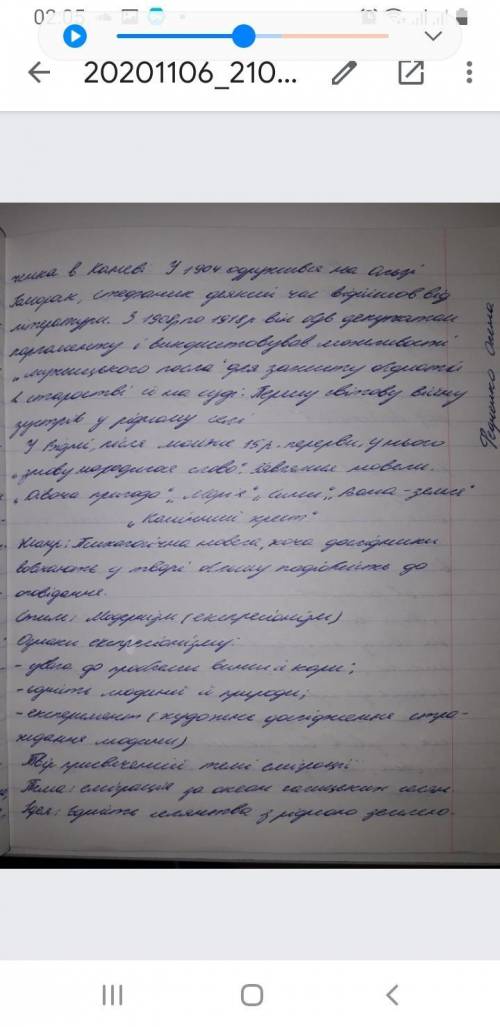 02:05
20201106_210...
жика в Канев. У 1904 одружився на Ользі
Гаморак, Стефаник деякий час відійшов від
літератури. З 1908 по 1918р він був депутатом
парламенту і використовував можливості
для захисту бідноти
в старостві й на суді. Першу світову війну
зустрів у рідному селі
У Відні, після майже 15 р. перерви, у нього
"знову народилося слово". новели.
"Марія", "Сини", "Вона - земля"
"Камінний хрест"
Жанр: Психологічна новела, хоча дослідники
вбачають у творі більшу подібність до
оповідання.
Стиль: Модернізм (експресіонізм)
Ознаки експресіонізму:
- увага до проблеми вини й кари;
- єдність людини й природи;
- експеримент (художнє дослідження страждання
людини)
Твір присвячений темі еміграції
Тема: еміграція за океан галицьких селян
Ідея: Єдність селянства з рідною землею.